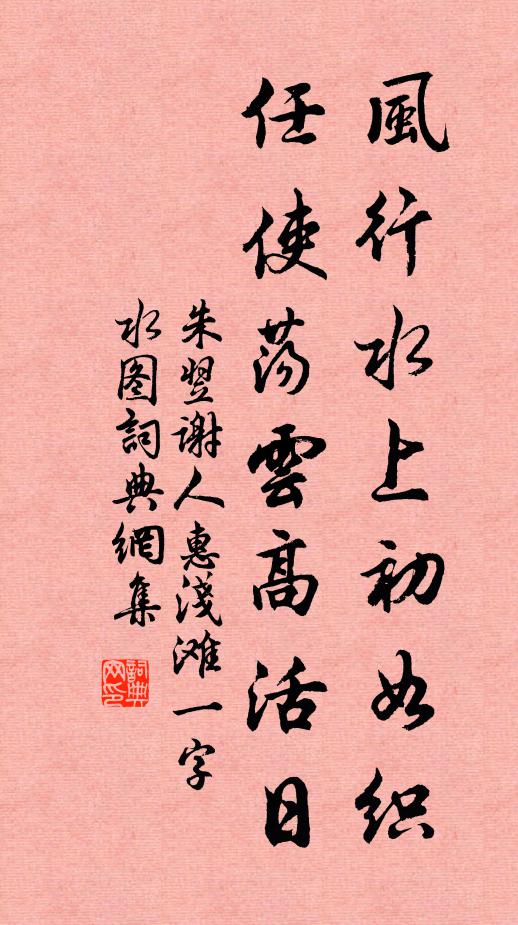 風行水上初如织
任使荡雲高活日
朱翌谢人惠淺滩一字
水图詞典網集
詞典
网印